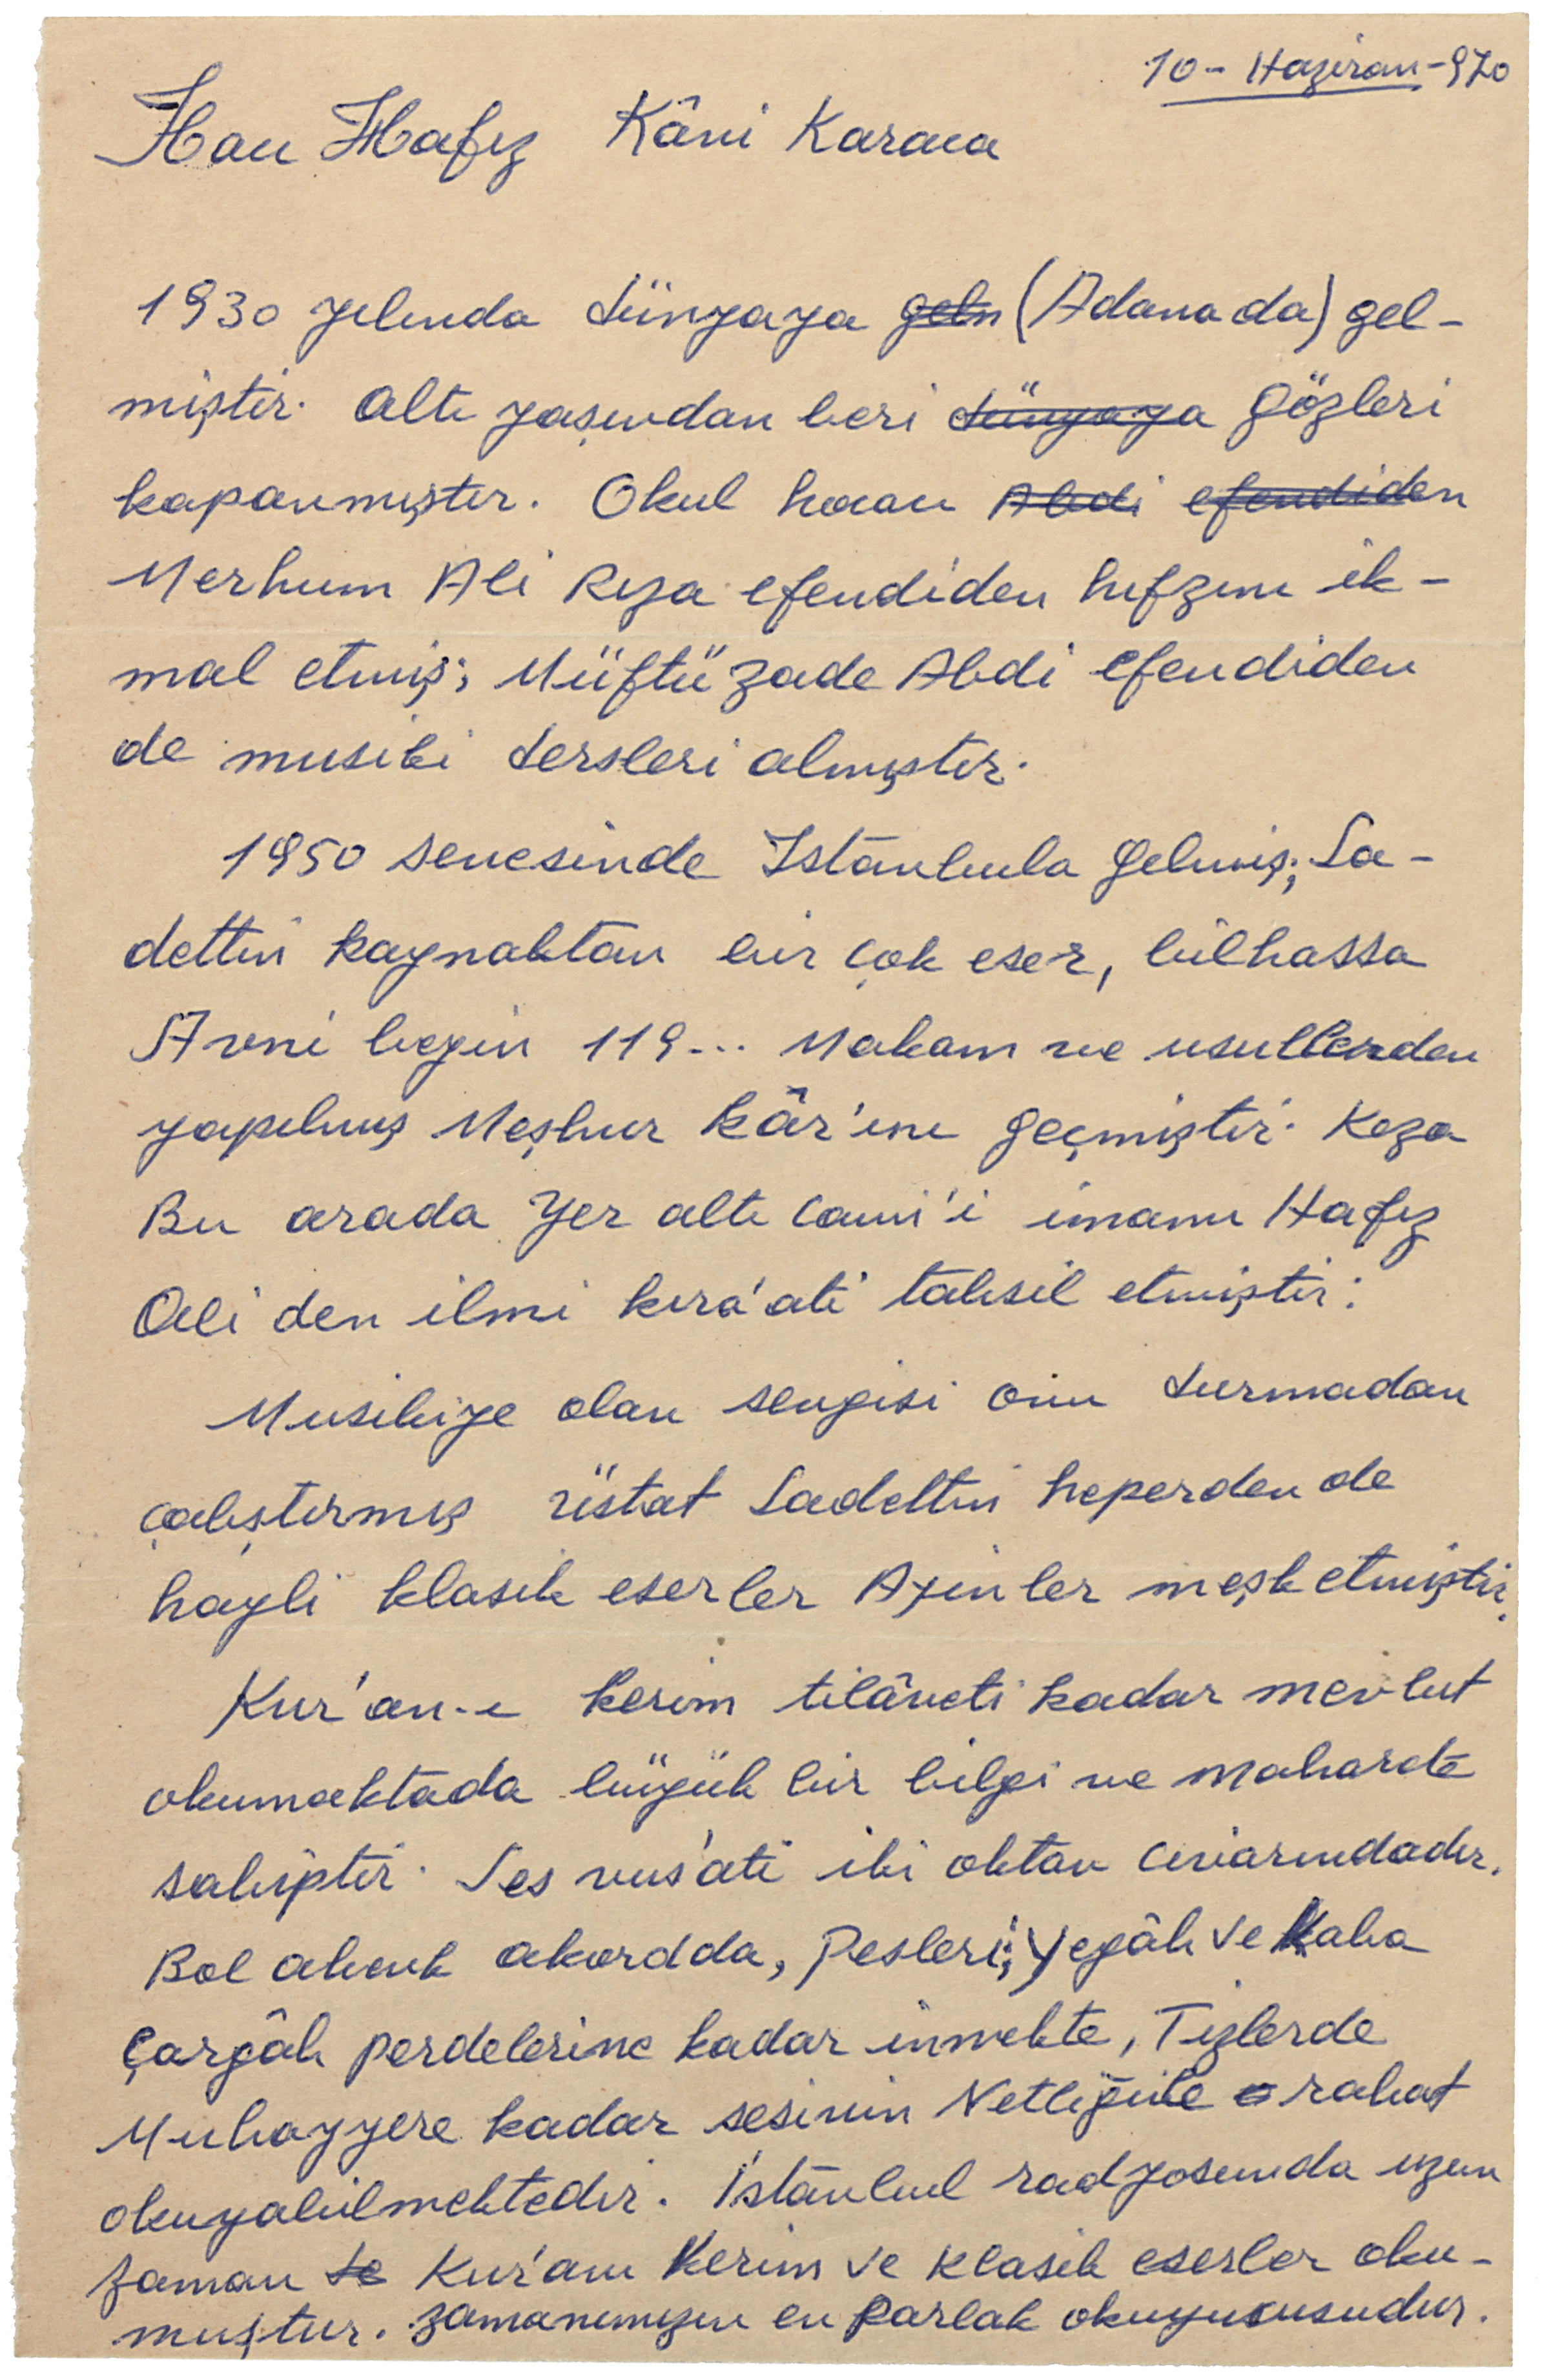 10 - Haziran - 970
Hacı Hafız Kâni Karaca
1930 yılında dünyaya geln (Adanada) gel-
miştir. Altı yaşından beri dünyaya gözleri
kapanmıştır. Okul hocası Abdi efendiden
Merhum Ali Rıza efendiden hıfzını ik-
mal etmiş; Müftü zade Abdi efendiden
de musiki dersleri almıştır.
1950 senesinde Istanbula gelmiş; Sa-
dettin kaynaktan bir çok eser, bilhassa
Avni beyin 119... Makam ve usullerden
yapılmış Meşhur kâr'ını geçmiştir. Keza
Bu arada Yer altı Cami'i imamı Hafız
Ali den ilmi kıra'ati tahsil etmiştir.
Musikiye olan sevgisi onu durmadan
çalıştırmış üstat Sadettin heperden de
hayli klasik eserler Ayinler meşk etmiştir.
Kur'an-ı Kerim tilâveti kadar mevlut
okumaktada büyük bir bilgi ve maharete
sahiptir. Ses vus'ati iki oktav civarındadır.
Bol ahenk akordda, Pesleri; Yegâh ve Kaba
Çargâh perdelerine kadar inmekte, Tizlerde
Muhayyere kadar sesinin Netliğile rahat
okuyabilmektedir. İstanbul radyosunda uzun
zaman de Kur'anı Kerim ve Klasik eserler oku-
muştur. Zamanımızın en parlak okuyucusudur.